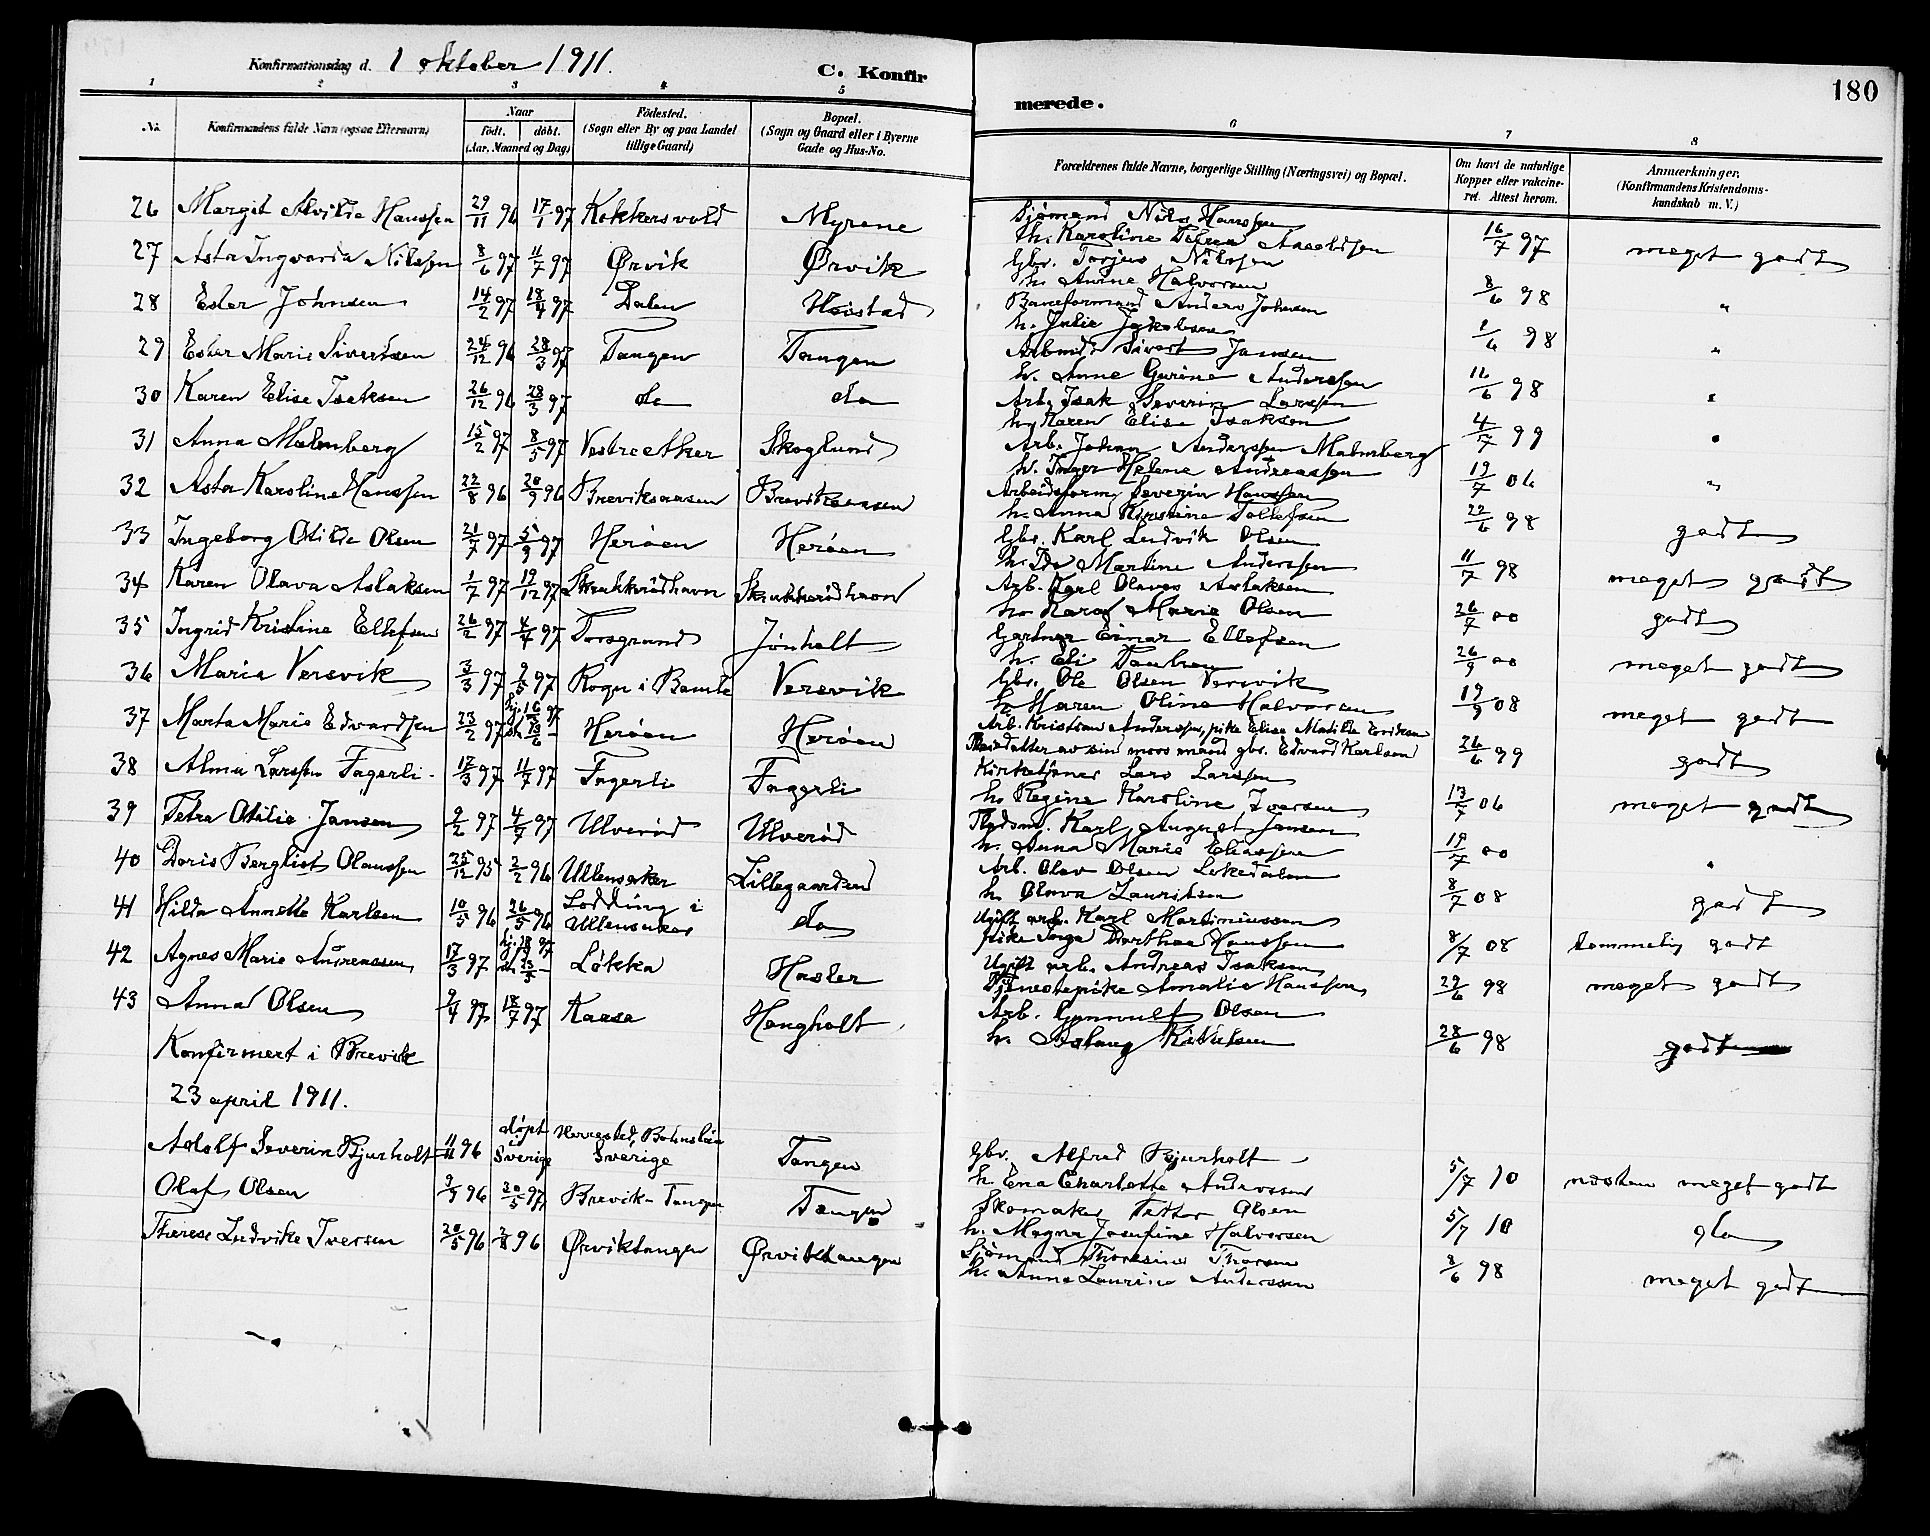 180
Konfirmationsdag d. 1 oktober 1911.
C. Konfirmerede.
1 2 3 4 5 6 7 8
No.
Konfirmandens fulde Navn (ogsaa Efternavn)
Naar
født. døbt.
(Aar, Maaned og Dag)
Födested.
(Sogn eller By og paa Landet
tillige Gaard)
Bopæl.
(Sogn og Gaard eller i Byerne
Gade og Hus-No.
Forældrenes fulde Navne, borgerlige Stilling (Næringsvei) og Bopæl.
Om havt de naturlige
Kopper eller vakcine-
ret. Attest herom.
Anmærkninger.
(Konfirmandens Kristendoms-
kundskab m. V.)
26 Margit Alvilde Hanssen 29/11 96 17/1 97 Kokkersvold Myrene Sjømand Nils Hanssen
h. Karoline Petrea Aaroldsen 16/7 97 meget godt
27 Asta Ingvarda Nilssen 8/6 97 11/7 97 Ørvik Ørvik Gbr. Torjus Nilssen
h. Anne Halvorsen 8/6 98 "
28 Ester Johnsen 14/2 97 18/4 97 Dalen Heistad Baneformand Anders Johnsen
h. Julie Jakobsen 1/6 98 "
29 Ester Marie Sivertsen 24/12 96 28/3 97 Tangen Tangen Arbmd. Sivert Jansen
h. Anne Gurine Anderssen 16/6 98 "
30 Karen Elise Isaksen 26/12 96 28/3 97 do do Arb. Isak Severin Larssen
h. Karen Elise Isaksen 4/7 99 "
31 Anna Malmberg 15/2 97 8/5 97 Vestre Aker Skoglund Arb. Johan Anderssen Malmberg
h. Inger Helene Andreassen 19/7 06 "
32 Asta Karoline Hanssen 22/8 96 20/9 96 Breviksaasen Breviksaasen Arbeidsform. Severin Hanssen
h. Anna Kirstine Tollefsen 22/6 98 godt
33 Ingeborg Otilde Olsen 21/7 97 5/9 97 Herøen Herøen Gbr. Karl Ludvik Olsen
h. Ida Martine Anderssen 11/7 98 meget godt
34 Karen Olava Aslaksen 1/7 97 19/12 97 Skrukkerødhavn Skrukkerødhavn Arb. Karl Olaves Aslaksen
h. Karen Marie Olsen 26/7 00 godt
35 Ingrid Kristine Ellefsen 26/2 97 4/7 97 Porsgrund Jønholt Gartner Einar Ellefsen
h. Eli 26/9 00 meget godt
36 Maria Versvik 3/3 97 9/5 97 Rogn i Bamle Versvik Gbr. Ole Olsen Versvik
h. Maren Oline Halvorsen 19/9 08 meget godt
37 Marta Marie Edvardsen 23/2 97 Herøen Herøen Arb. Kristian Anderssen, pike Elise Matilde
av sin mors mand gbr. Edvard Karlsen 26/6 99 godt
38 Alma Larssen Fagerli 17/3 97 11/7 97 Fagerli Fagerli Kirketjener Lars Larssen
h. Regine Karoline Iversen 13/7 06 meget godt
39 Petra Otilie Jansen 9/2 97 4/7 97 Ulverød Ulverød Karl August Jansen
h. Anna Marie Eliassen 19/7 00 "
40 Doris Bergliot Olaussen 25/12 95 2/2 96 Ullensaker Lillegaarden Arb. Olav Olsen
h. Olava Lauritsen 8/7 08 godt
41 Hilda Annette Karlsen 10/5 96 26/5 96 Lodding i
Ullensaker do Ugift arb. Karl Martiniussen
pike Inga Dorthea Hanssen 8/7 08 temmelig godt
42 Agnes Marie Andreassen 17/3 97 Løkka Hasler Ugift arb. Andreas Isaksen
Tjenestepike Amalie Hanssen 29/6 98 meget godt
43 Anna Olsen 9/4 97 18/7 97 Kaasa Hengholt Arb. Gunnulf Olsen
h. Aslaug Kittelsen 28/6 98 godt
Konfirmert i Brevik
23 april 1911.
Adolf Severin Bjurholt 11/11 96 døpt i Sverige Herrestad, Bohuslän
Sverige Tangen Gbr. Alfred Bjurholt
h. Ena Charlotte Anderssen 5/7 10 næsten meget godt
Olaf Olsen 9/9 96 30/5 97 Brevik-Tangen Tangen Skomaker Petter Olsen
h. Magna Josefine Halvorsen 5/7 10 do
Therese Ludvike Iversen 20/5 96 2/8 96 Ørviktangen Ørviktangen Sjømand Thoresius Thorsen
h. Anne Laurine Anderssen 8/6 98 meget godt